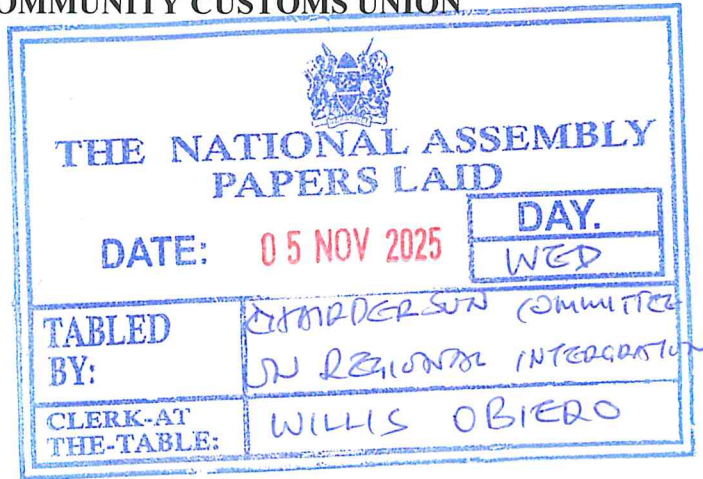 OMMUNITY CUSTOMS UNION
THE NATIONAL ASSEMBLY
PAPERS LAID
DATE: 05 NOV 2025
DAY.
WED
TABLED
BY:
CHAIRPERSON COMMITTEE
ON REGIONAL INTERGRATION
CLERK-AT
THE-TABLE:
WILLIS OBIERO